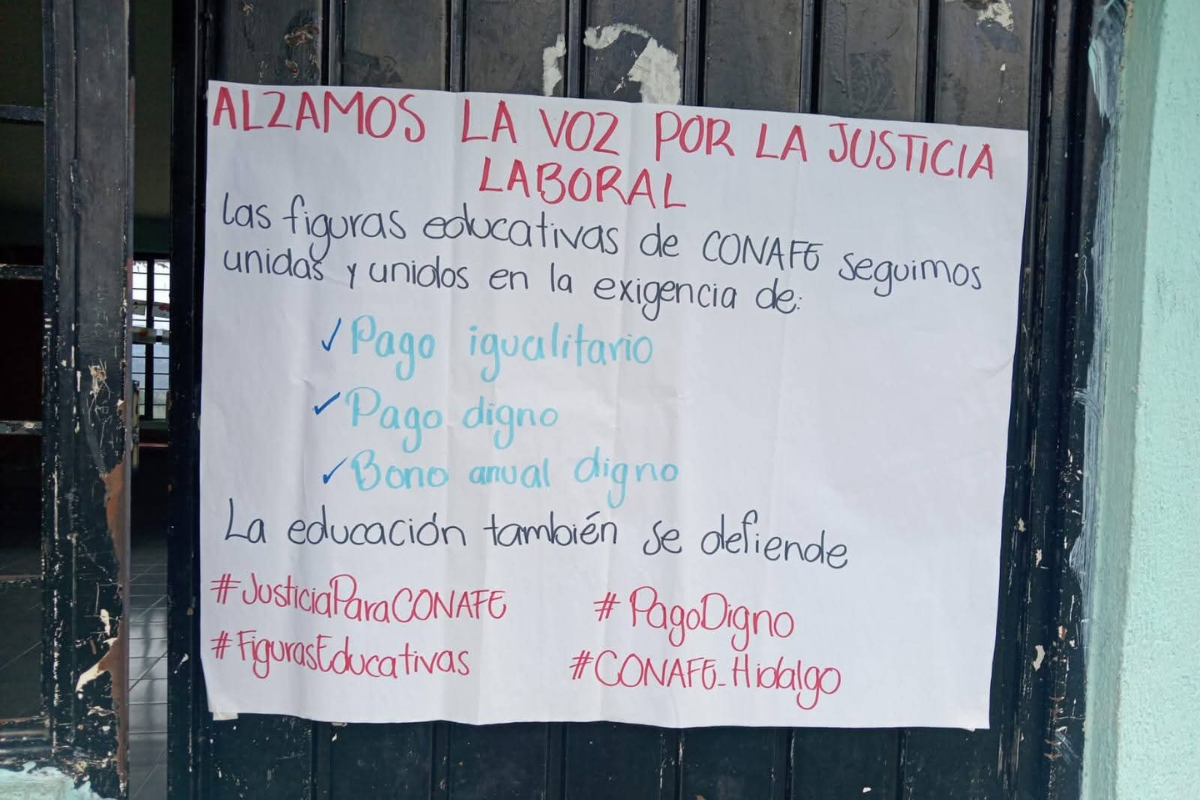 ALZAMOS LA VOZ POR LA JUSTICIA
LABORAL
Las figuras educativas de CONAFE seguimos
unidas y unidos en la exigencia de:
✓ Pago igualitario
✓ Pago digno
✓ Bono anual digno
La educación también se defiende
#JusticiaParaCONAFE #PagoDigno
#FigurasEducativas #CONAFE_Hidalgo